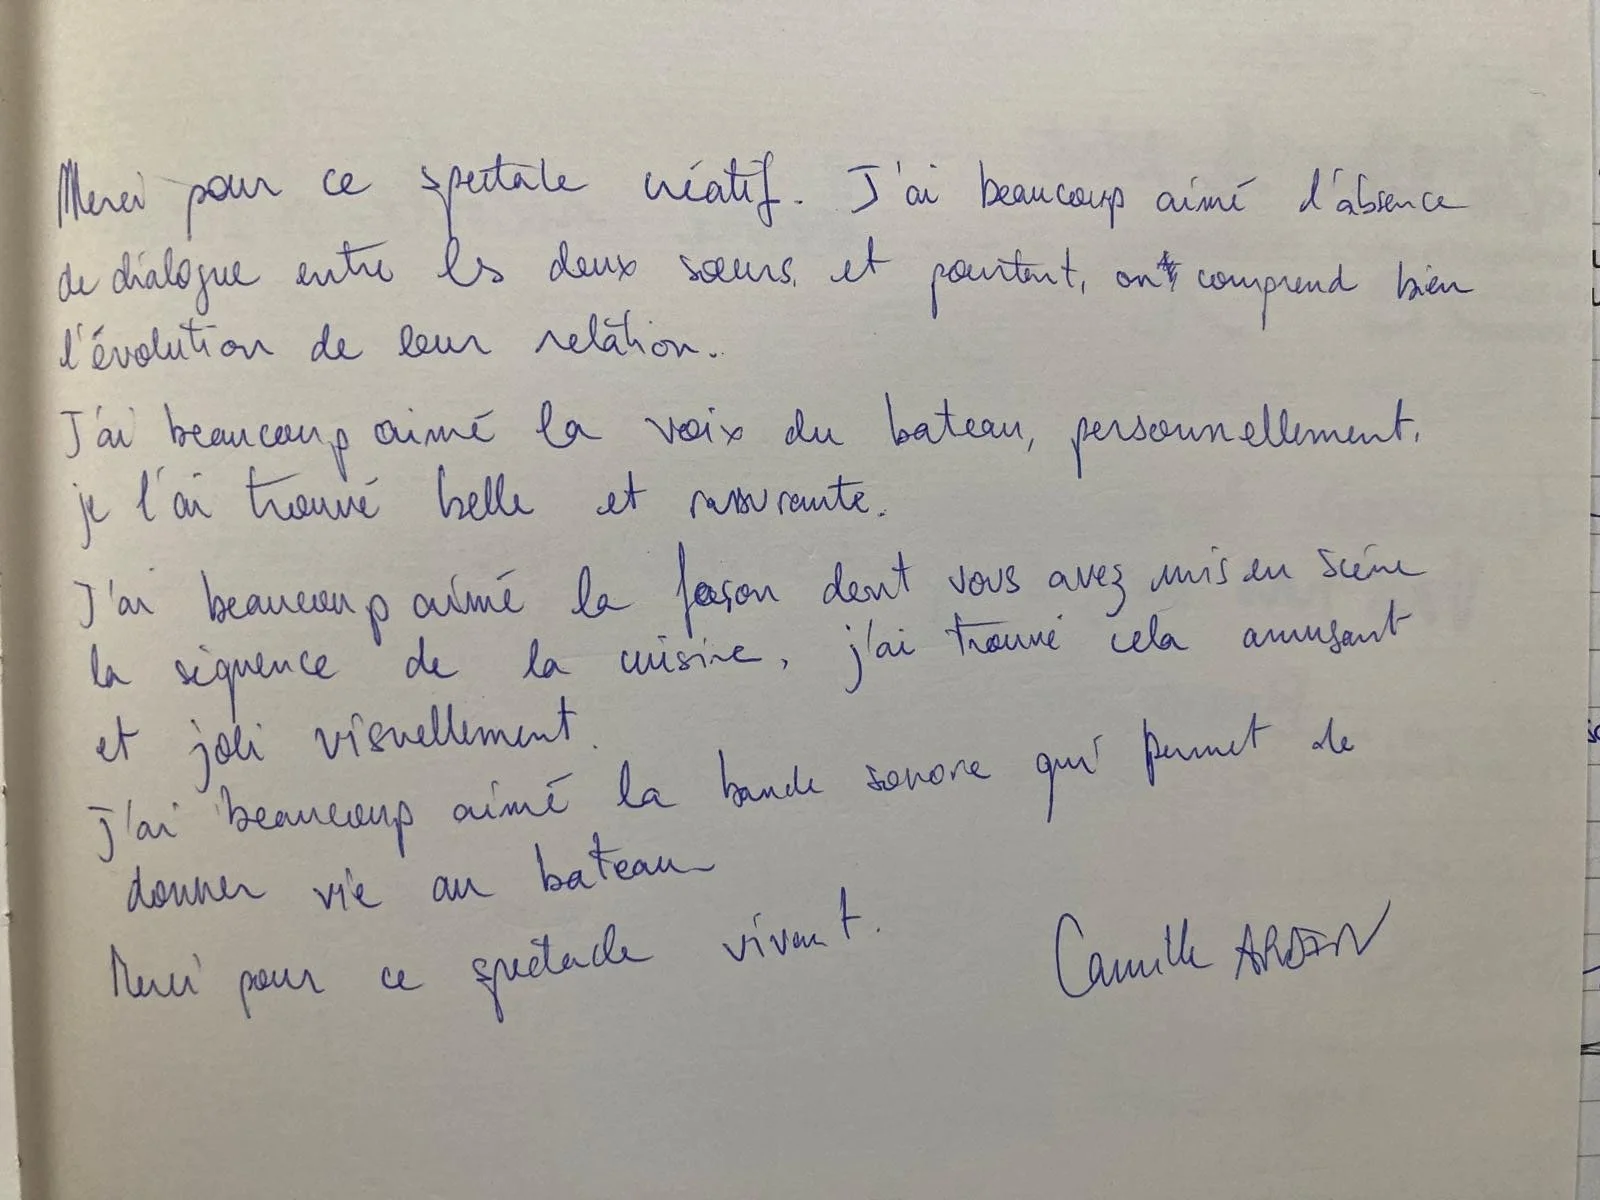 Merci pour ce spectale créatif. J'ai beaucoup aimé l'absence
de dialogue entre les deux sœurs, et pourtant, on comprend bien
l'évolution de leur relation.
J'ai beaucoup aimé la voix du bateau, personnellement,
je l'ai trouvé belle et rassurante.
J'ai beaucoup aimé la façon dont vous avez mis en scène
la séquence de la cuisine, j'ai trouvé cela amusant
et joli visuellement.
J'ai beaucoup aimé la bande sonore qui permet de
donner vie au bateau
Merci pour ce spectacle vivant.
Camille